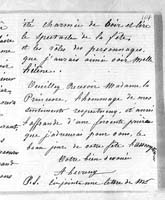 été charmée de voir et lire
le spectacle de la fête
et les rôles des personnages,
que j'aurais aimé voir Melle
Hélène.
Veuillez Recevoir Madame la
Princesse, l'hommage de mes
sentiments respectueux, et mon
offrande d'une fervente prière
que j'adresserai pour vous, le
beau jour de votre fête
Votre bien
P.S. Ci-joint une lettre de